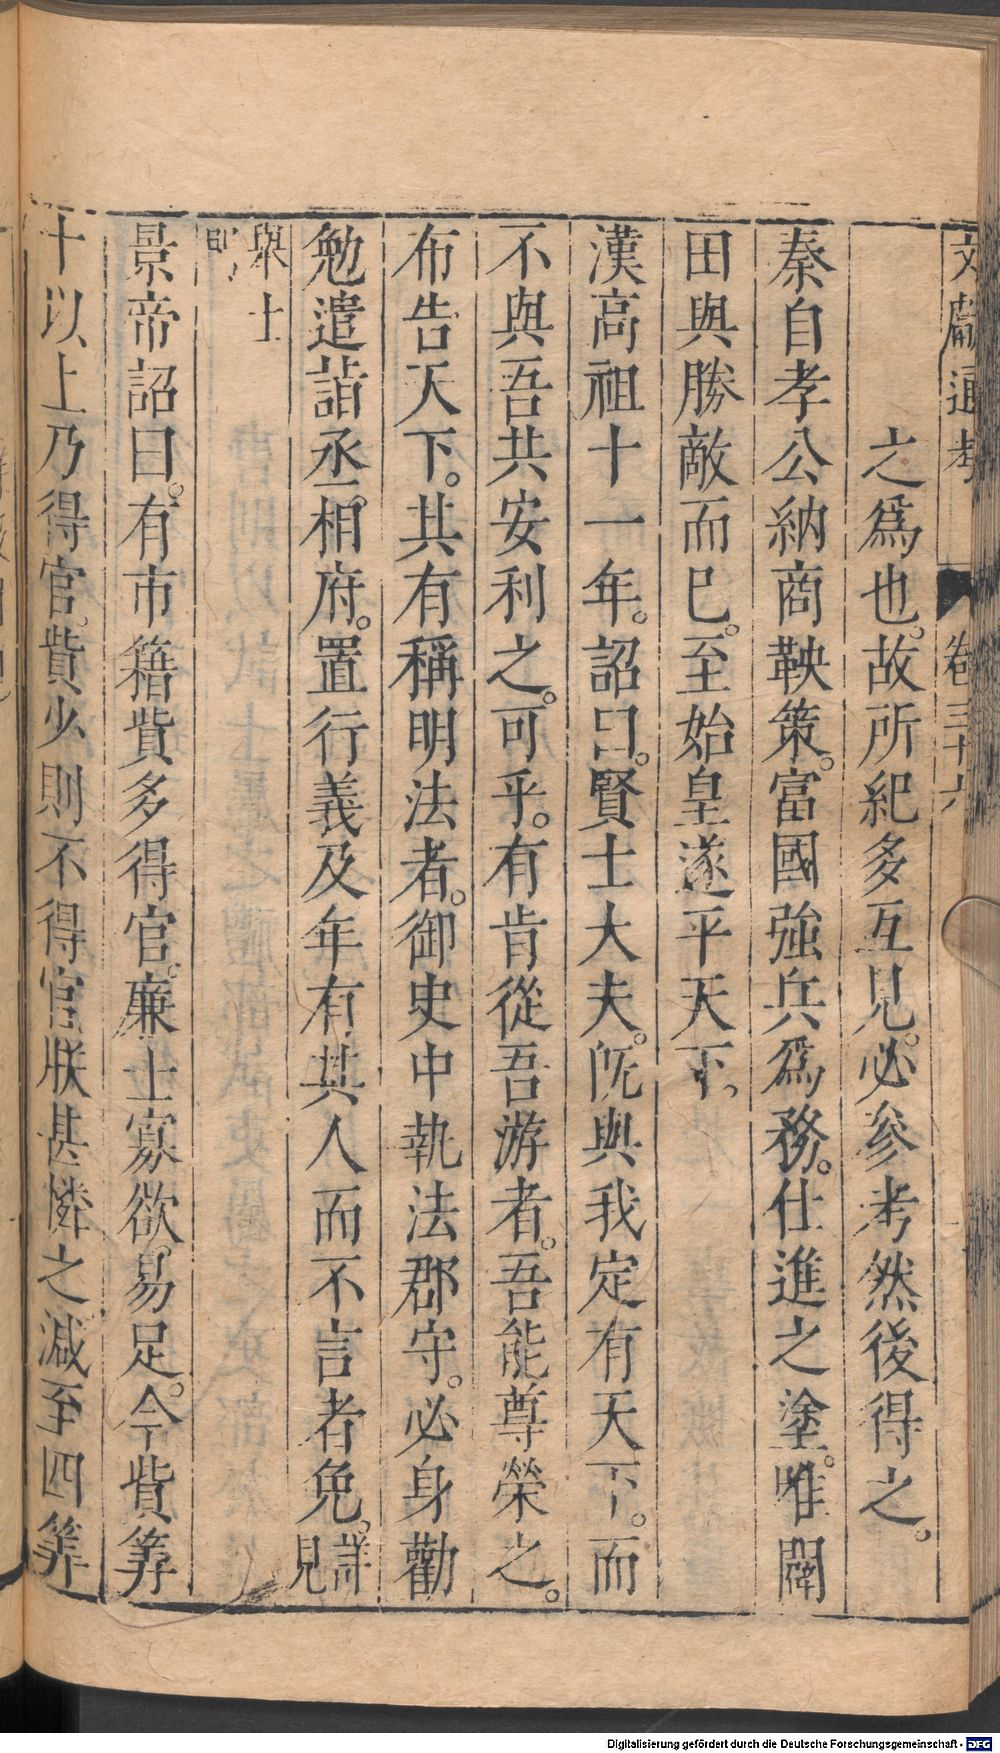 文獻通考 卷三十六
之爲也。故所紀多互見。必參考然後得之。
秦自孝公納商鞅策。富國強兵爲務。仕進之塗。唯闢
田與勝敵而已。至始皇遂平天下。
漢高祖十一年。詔曰。賢士大夫。旣與我定有天下。而
不與吾共安利之。可乎。有肯從吾游者。吾能尊榮之。
布告天下。其有稱明法者。御史中執法郡守。必身勸
勉遣詣丞相府。置行義及年有其人而不言者免。詳見
舉士
景帝詔曰。有市籍貲多得官。廉士寡欲易足。今貲筭
十以上乃得官。貲少則不得官朕甚憐之減至四筭
Digitalisierung gefördert durch die Deutsche Forschungsgemeinschaft - DFG